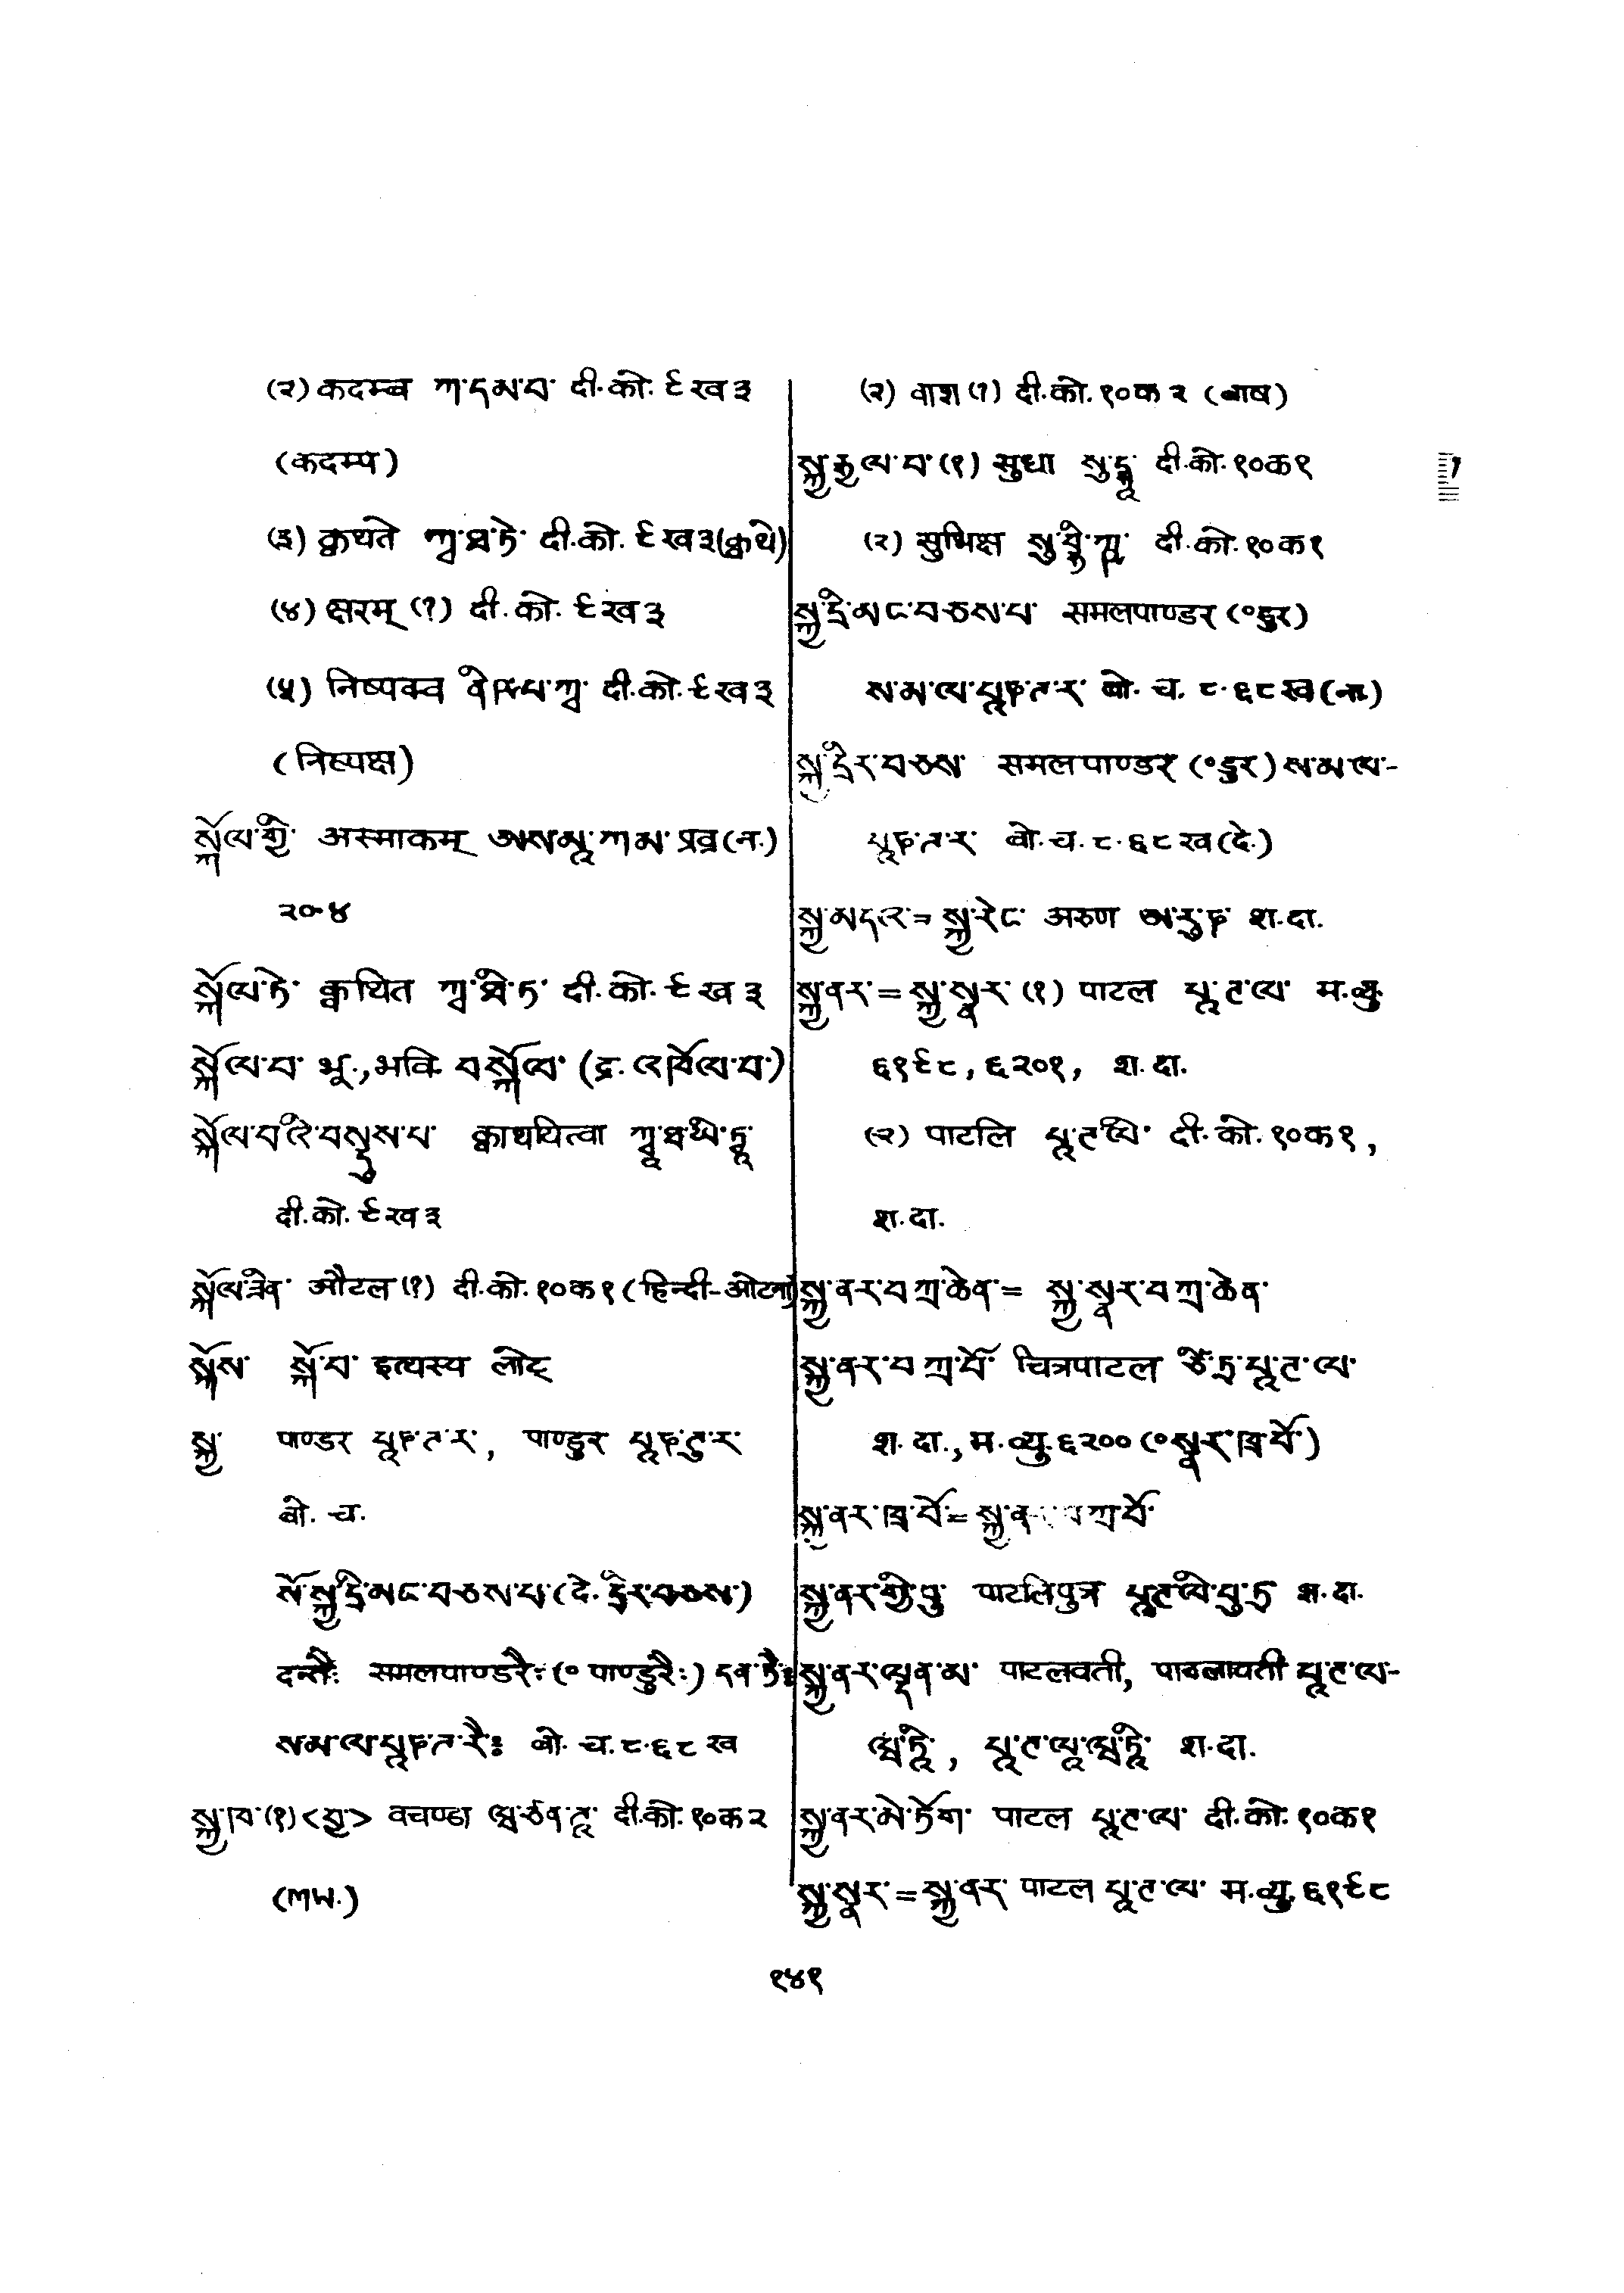 (२) कदम्ब ཀ་ད་མ་བ་ दी.को. ९ख३
(कदम्प)
(३) क्वथते ཀྭ་ཐ་ཏེ་ दी.को. ९ख३(क्वथे)
(४) क्षरम् (?) दी.को. ९ख३
(५) निष्पक्व ནིཥྤ་ཀྭ་ दी.को. ९ख३
(निष्पक्ष)
སྐོལ་གྱི་ अस्माकम् ཨསྨཱ་ཀམ་ प्रव्र(न.)
२०४
སྐོལ་ཏེ་ क्वथित ཀྭ་ཐི་ཏ་ दी.को. ९ख३
སྐོལ་བ་ भू., भवि བསྐོལ་ (द्र. འཁོལ་བ་)
སྐོལ་བའི་བསྡུས་པ་ क्वाथयित्वा ཀྭཱ་ཐ་ཡི་ཏྭཱ་
दी.को. ९ख३
སྐོལ་ཟིན་ औटल (?) दी.को. १०क१ (हिन्दी-ओटना)
སྐོས་ སྐོ་བ་ इत्यस्य लोट्
སྐྱ་ पाण्डर པཱཎ་ཌ་ར་, पाण्डुर པཱཎ་ཌུ་ར་
बो.च.
སོ་སྐྱ་དྲི་མ་ང་བ་ཅས་པ་(दे. དྲིར་བཅས་)
दन्तैः समलपाण्डरैः (॰पाण्डुरैः) དན་ཏཻཿ
ས་མ་ལ་པཱཎ་ཌ་རཻཿ बो.च. ८.६८ख
སྐྱ་ཁ་(१) <སྐྱ་> वचण्डा ཝ་ཙན་ཌཱ་ दी.को. १०क२
(२) वाश (?) दी.को. १०क२ (वाष)
སྐྱ་རྒྱལ་བ་ (१) सुधा སུ་དྷཱ་ दी.को. १०क१
(२) सुभिक्ष སུ་བྷི་ཀྵ་ दी.को. १०क१
སྐྱ་དྲི་མ་ང་བ་ཅས་པ་ समलपाण्डर (॰डुर)
ས་མ་ལ་པཱཎ་ཌ་ར་ बो.च. ८.६८ख(ना.)
སྐྱ་དྲིར་བཅས་ समलपाण्डर (॰डुर) ས་མ་ལ་-
པཱཎ་ཌ་ར་ बो.च. ८.६८ख(दे.)
སྐྱ་མདའ་ = སྐྱ་རེང་ अरुण ཨ་རུ་ཎ་ श.दा.
སྐྱ་ནར་ = སྐྱ་སྣར་ (१) पाटल པཱ་ཊ་ལ་ म.व्यु.
६१९८, ६२०१, श.दा.
(२) पाटलि པཱ་ཊ་ལི་ दी.को. १०क१,
श.दा.
སྐྱ་ནར་བ་ཀྲ་ཆེན་ = སྐྱ་སྣར་བ་ཀྲ་ཆེན་
སྐྱ་ནར་བ་ཀྲ་བོ་ चित्रपाटल ཙི་ཏྲ་པཱ་ཊ་ལ་
श.दा., म.व्यु. ६२०० (॰སྣར་ཁྲ་བོ་)
སྐྱ་ནར་ཁྲ་བོ་ = སྐྱ་ན ཀྲ་བོ་
སྐྱ་ནར་གྱི་བུ་ पाटलिपुत्र པཱ་ཊ་ལི་པུ་ཏྲ श.दा.
སྐྱ་ནར་ལྡན་མ་ पाटलवती, पाटलावती པཱ་ཊ་ལ་-
ཝ་ཏཱི་, པཱ་ཊ་ལཱ་ཝ་ཏཱི་ श.दा.
སྐྱ་ནར་མེ་ཏོག་ पाटल པཱ་ཊ་ལ་ दी.को. १०क१
སྐྱ་སྣར་ = སྐྱ་ནར་ पाटल པཱ་ཊ་ལ་ म.व्यु. ६१९८
१४१